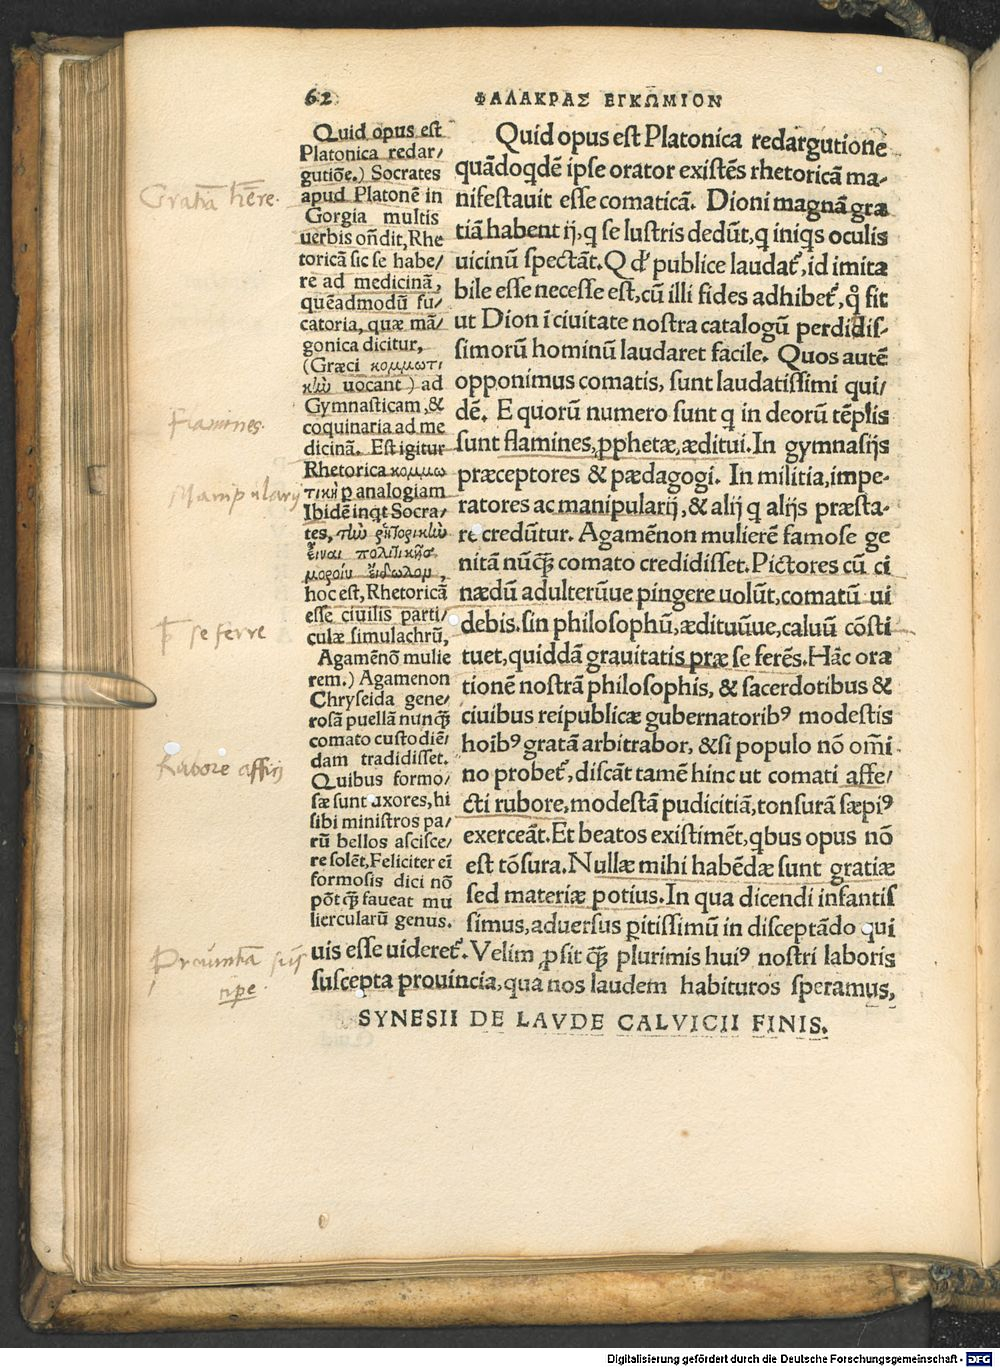 62
ΦΑΛΑΚΡΑΣ ΕΓΚΩΜΙΟΝ
Quid opus est
Platonica redar/
gutiõe.) Socrates
apud Platonē in
Gorgia multis
uerbis oñdit, Rhe
toricā sic se habe/
re ad medicinā,
quēadmodū fu/
catoria, quæ mā/
gonica dicitur,
(Græci κομμωτι
κὴν uocant) ad
Gymnasticam, &
coquinaria ad me
dicinā. Est igitur
Rhetorica κομμω
τικὴ ꝑ analogiam
Ibidē inqt Socra/
tes, τὴν ῥητορικὴν
εἶναι πολιτικῆς
μορίου εἴδωλον,
hoc est, Rhetoricā
esse ciuilis parti/
culæ simulachrū,
Agamēnō mulie
rem.) Agamenon
Chryseida gene/
rosā puellā nunꝗ̃
comato custodiē/
dam tradidisset.
Quibus formo/
sæ sunt uxores, hi
sibi ministros pa/
rū bellos ascisce/
re solēt, Feliciter eī
formosis dici nō
põt ꝗ̃ faueat mu
liercularū genus.
Quid opus est Platonica redargutione
quādoqdē ipse orator existēs rhetoricā ma-
nifestauit esse comaticā. Dioni magnā gra
tiā habent ij, q se lustris dedūt, q iniqs oculis
uicinū spectāt. Qd' publice laudat᷑, id imita
bile esse necesse est, cū illi fides adhibet᷑, q̊ fit
ut Dion ī ciuitate nostra catalogū perdidis-
simorū hominū laudaret facile. Quos autē
opponimus comatis, sunt laudatissimi qui/
dē. E quorū numero sunt q in deorū tēplis
sunt flamines, ꝓphetæ, æditui. In gymnasijs
præceptores & pædagogi. In militia, impe-
ratores ac manipularij, & alij q alijs præsta-
re credūtur. Agamēnon mulierē famose ge
nitā nūꝗ̃ comato credidisset. Pictores cū ci
nædū adulterūue pingere uolūt, comatū ui
debis. sin philosophū, ædituūue, caluū cōsti
tuet, quiddā grauitatis præ se ferēs. Hāc ora
tionē nostrā philosophis, & sacerdotibus &
ciuibus reipublicæ gubernatoribꝰ modestis
hoībꝰ gratā arbitrabor, & si populo nō omī
no probet᷑, discāt tamē hinc ut comati affe/
cti rubore, modestā pudicitiā, tonsurā sæpiꝰ
exerceāt. Et beatos existimēt, qbus opus nō
est tōsura. Nullæ mihi habēdæ sunt gratiæ
sed materiæ potius. In qua dicendi infantis
simus, aduersus ꝑitissimū in disceptādo qui
uis esse uideret᷑. Velim ꝓsit ꝗ̃ plurimis huiꝰ nostri laboris
suscepta prouincia, qua nos laudem habituros speramus,
SYNESII DE LAVDE CALVICII FINIS.
Gratiā hēre.
Flamines.
Manipularij
p̄ se ferre
Rubore affici
Prouintiā sus
cipe.
Digitalisierung gefördert durch die Deutsche Forschungsgemeinschaft - DFG